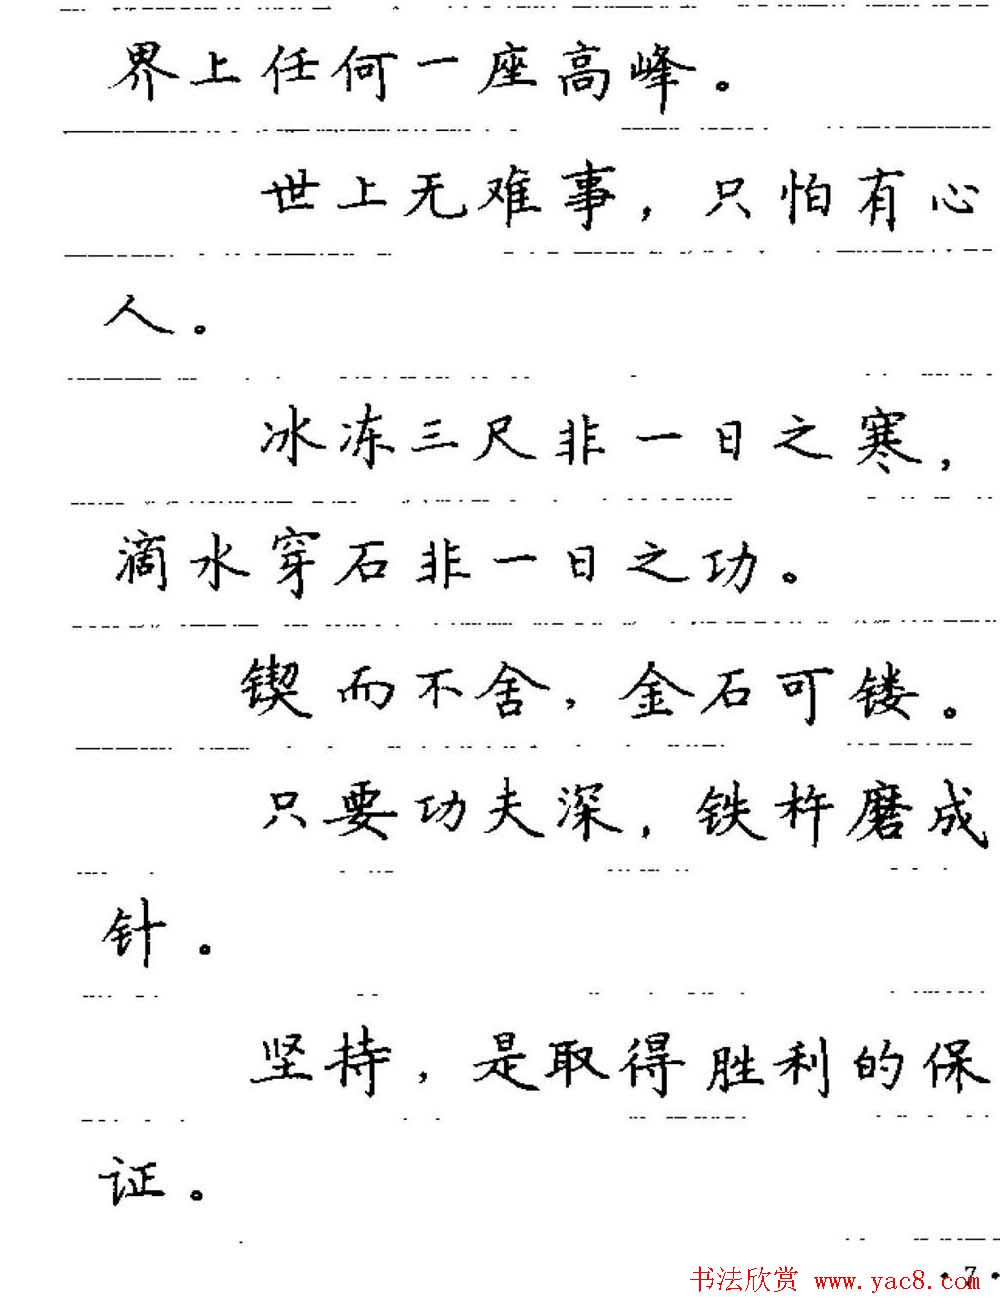 界上任何一座高峰。
世上无难事，只怕有心
人。
冰冻三尺非一日之寒，
滴水穿石非一日之功。
锲而不舍，金石可镂。
只要功夫深，铁杵磨成
针。
坚持，是取得胜利的保
证。
·7·
书法欣赏 www.yac8.com